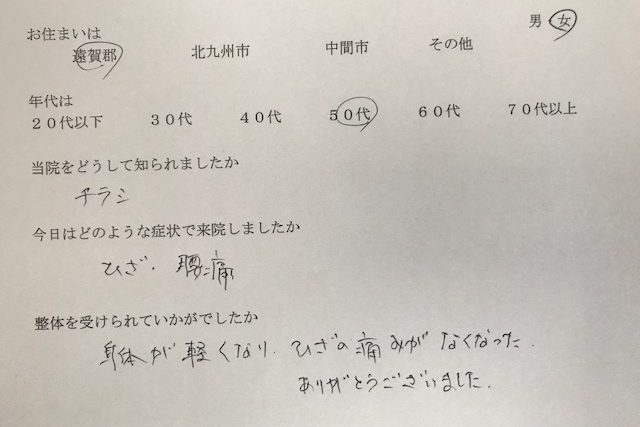 男 女
お住まいは
遠賀郡 北九州市 中間市 その他
年代は
20代以下 30代 40代 50代 60代 70代以上
当院をどうして知られましたか
チラシ
今日はどのような症状で来院しましたか
ひざ、腰痛
整体を受けられていかがでしたか
身体が軽くなり、ひざの痛みがなくなった.
ありがとうございました.